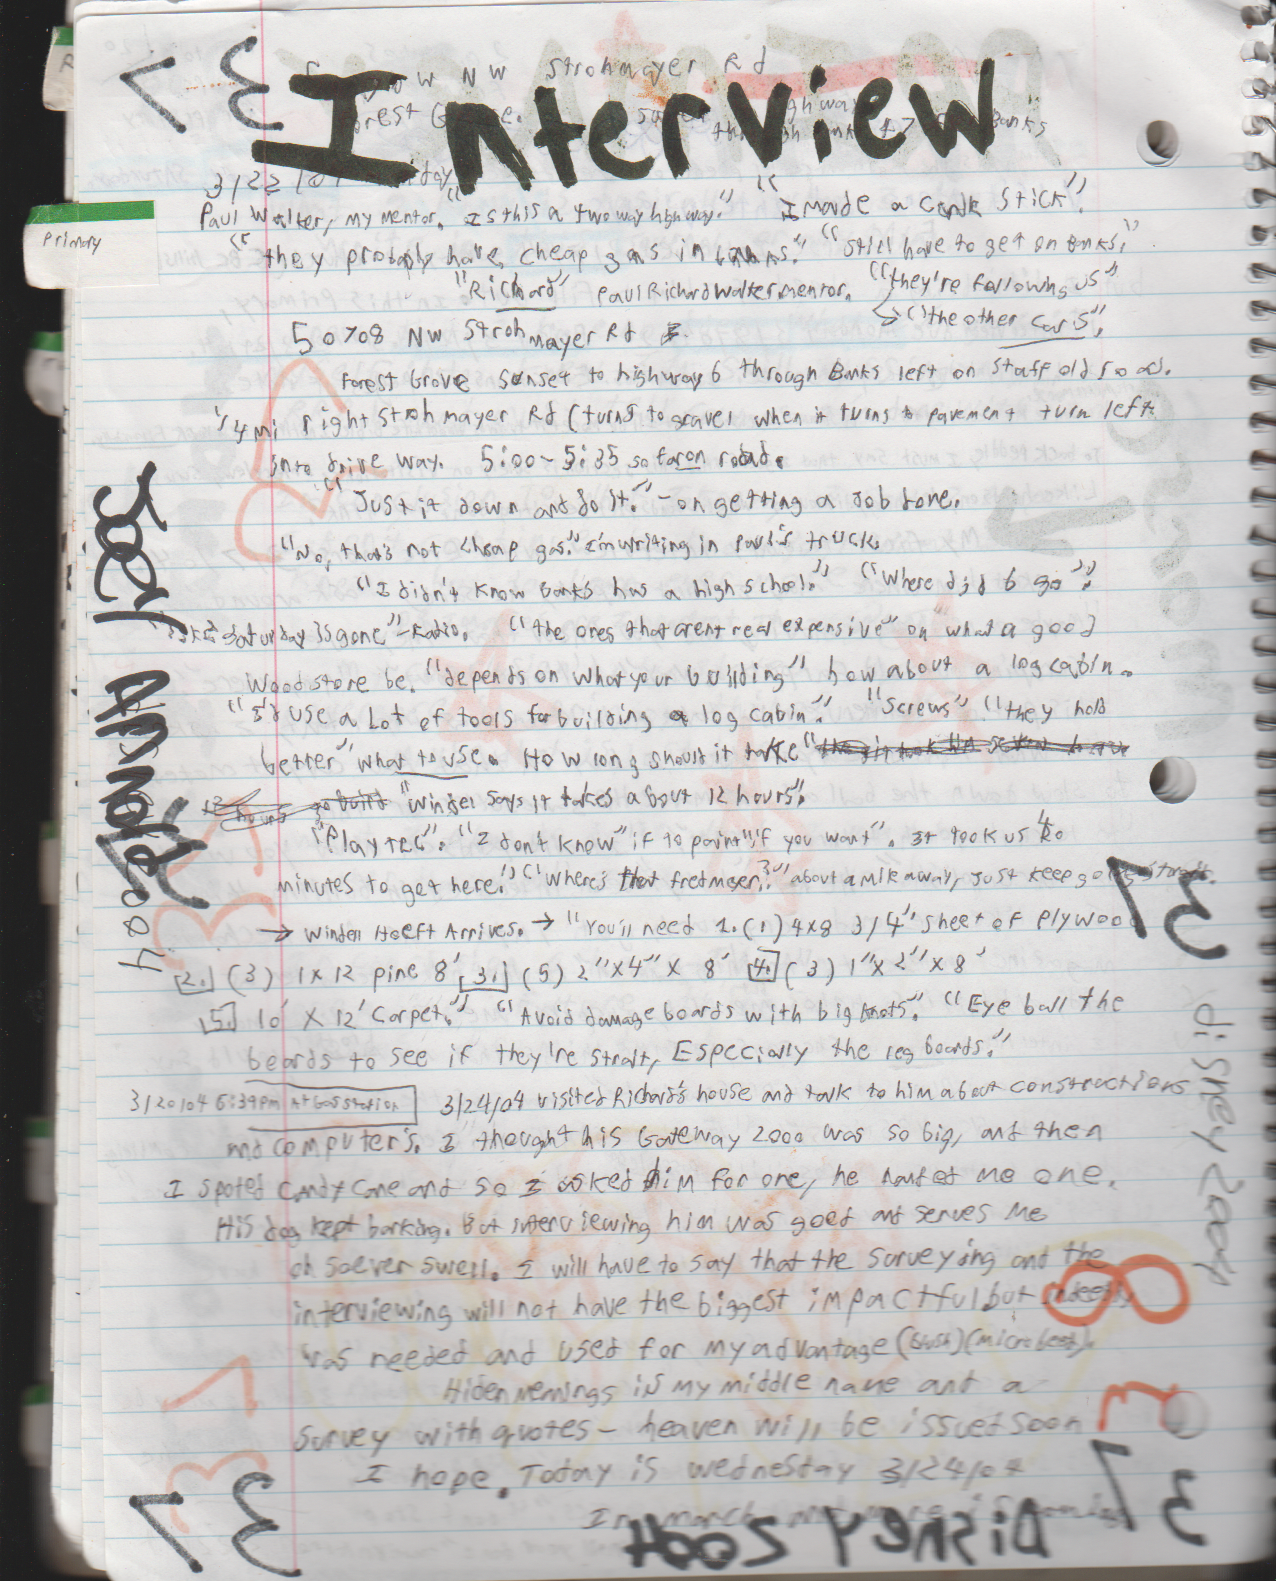 Interview
NW Strohmayer Rd
3/22/04
Paul Walter, my mentor. "Is this a two way highway." "I made a candle stick".
"they probably have cheap gas in banks." "Still have to get on Banks."
"Richard" Paul Richard Walter mentor. "they're following us"
"the other cars".
50708 NW Strohmayer Rd
Forest Grove Sunset to highway 6 through Banks left on staff old road.
1/4 mi right Strohmayer Rd (turns to gravel when it turns to pavement turn left
into drive way. 5:00~5:35 so far on road.
"Just it down and do it." - on getting a Job done.
"No, that's not cheap gas." I'm writing in paul's truck.
"I didn't know Banks has a high school." "Where did 6 go".
Saturday is gone" - Radio. "the ones that arent real expensive" on what a good
Wood store be. "depends on what your building" how about a log cabin.
"I'd use a Lot of tools for building a log cabin." "Screws" "they hold
better" what to use. How long should it take
"Windel says it takes about 12 hours".
"Playtec". "I don't know" if to paint "if you want". It took us 40
minutes to get here." "Where's that fredmeyer?" about a mile away, just keep going straight.
→ Windell Hoeft Arrives. → "You'll need 1. (1) 4x8 3/4" sheet of plywood
2. (3) 1x12 pine 8' 3. (5) 2"x4"x 8' 4. (3) 1"x2"x8'
5. 10' x 12' Carpet." "Avoid damage boards with big knots." "Eye ball the
boards to see if they're strait, Especially the leg boards."
3/20/04 5:39pm At Gas station 3/24/04 visited Richard's house and talk to him about constructions
and computer's. I thought his Gateway 2000 was so big, and then
I spoted candy cane and so I asked him for one, he handed me one.
His dog kept barking. But interviewing him was good and serves me
oh soever swell. I will have to say that the surveying and the
interviewing will not have the biggest impactful but indeed
was needed and used for my advantage (Bush) (microbeed).
Hiden menings in my middle name and a
survey with quotes - heaven will be issued soon
I hope. Today is wednesday 3/24/04
In march
Primary
37
37
37
37
8
3
Joel
2004
Disney 2004
Disney 2004